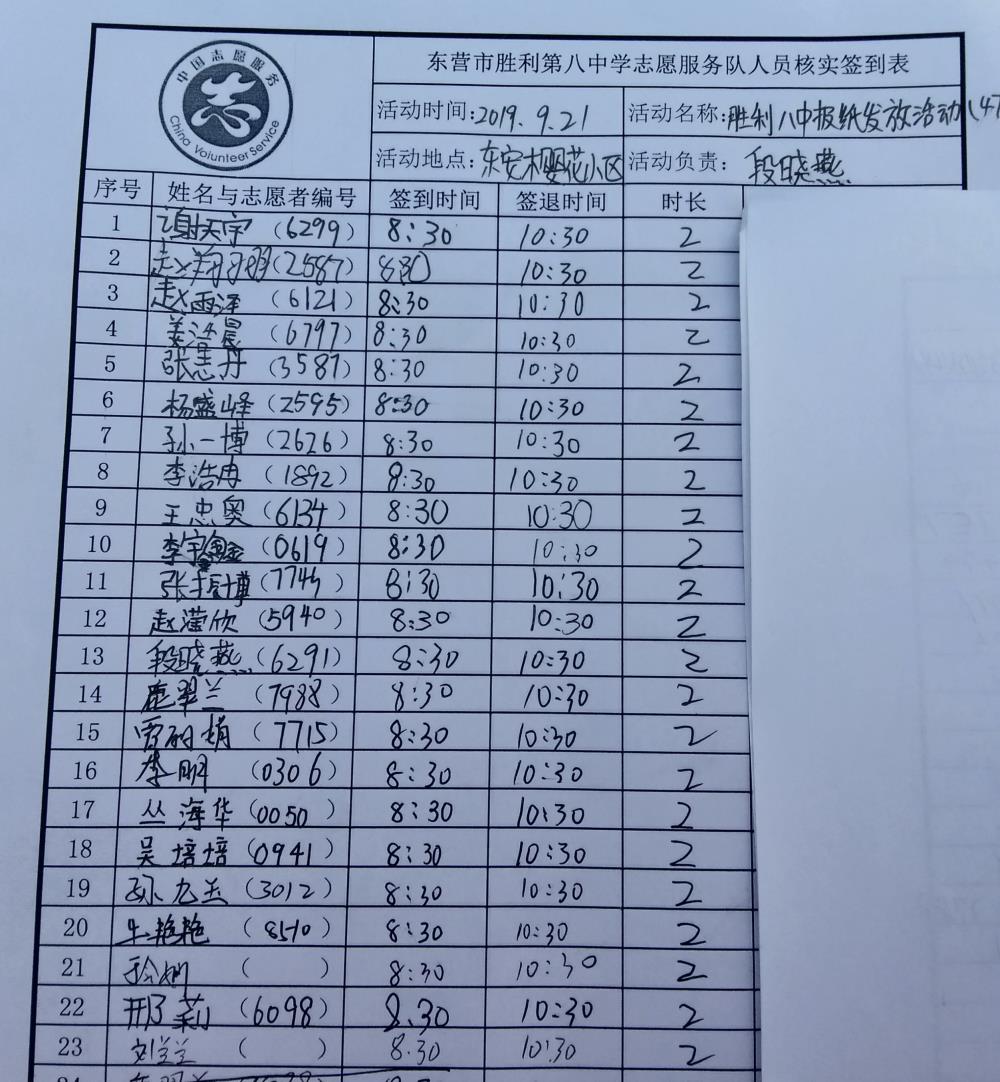 中国志愿服务
志
China Volunteer Service
东营市胜利第八中学志愿服务队人员核实签到表
活动时间:2019.9.21 活动名称:胜利八中报纸发放活动(47
活动地点:东安樱花小区 活动负责:段晓燕
序号 姓名与志愿者编号 签到时间 签退时间 时长
1 谢天宇(6299) 8:30 10:30 2
2 赵翔(2587) 8:30 10:30 2
3 赵雨泽(6121) 8:30 10:30 2
4 姜浩晨(6797) 8:30 10:30 2
5 张惠丹(3587) 8:30 10:30 2
6 杨盛峰(2595) 8:30 10:30 2
7 孙一博(2626) 8:30 10:30 2
8 李浩冉(1892) 8:30 10:30 2
9 王忠奥(6134) 8:30 10:30 2
10 李宇鑫(0619) 8:30 10:30 2
11 张博(7745) 8:30 10:30 2
12 赵滢欣(5940) 8:30 10:30 2
13 段晓燕(6291) 8:30 10:30 2
14 鹿翠兰(7988) 8:30 10:30 2
15 贾娟(7715) 8:30 10:30 2
16 李明(0306) 8:30 10:30 2
17 丛海华(0050) 8:30 10:30 2
18 吴培培(0941) 8:30 10:30 2
19 孙(3012) 8:30 10:30 2
20 牛艳艳(8510) 8:30 10:30 2
21 ( ) 8:30 10:30 2
22 邢莉(6098) 8.30 10:30 2
23 刘兰兰( ) 8:30 10:30 2